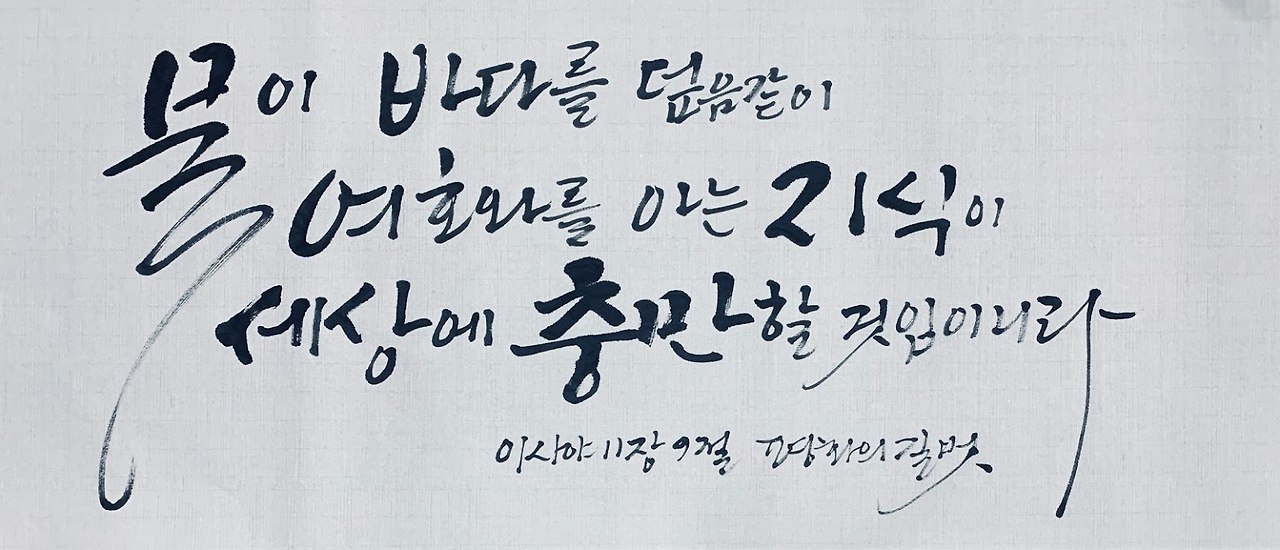 물이 바다를 덮음같이
여호와를 아는 지식이
세상에 충만할 것임이니라
이사야 11장 9절 평화의 길벗